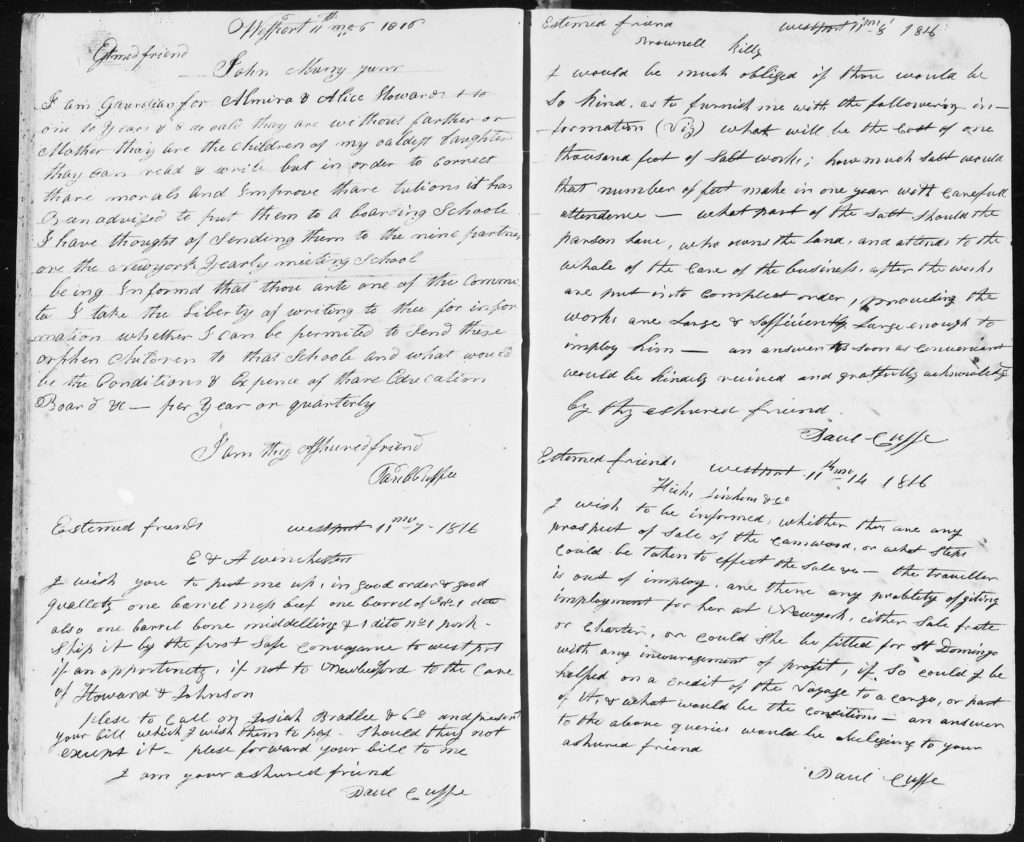 Westport 11th mo 6 1816
Esteemed friend
John Murry junr
I am Gaurdian for Almira & Alice Howards
one 10 years & 8 do old thay are without farther or
Mother thay are the children of my oaldest daughter
thay can read & write but in order to correct
thare morals and Improve thare tutions it has
Been advized to put them to a boarding Schoole
I have thought of Sending them to the nine partners
ore the Newyork Yearly meeting School
being Informd that thou arte one of the Commi-
tee I take the Liberty of writing to thee for infor
mation whether I can be permited to Send these
orphen Children to that Schoole and what would
be the Conditions & Expence of thare Education
Board &c — per Year or quarterly
I am thy Assured friend
Paul Cuffee
Estemed friends westport 11 mo 7 - 1816
E & A winchester
I wish you to put me up, in good order & good
quallety one barrel mess beef one barrel of No 1 do
also one barrel bone middelling & 1 dito No 1 pork -
Ship it by the first Safe Conveyance to westport
if an opportunity, if not to Newbedford to the Care
of Howard & Johnson
plese to Call on Josiah Bradlee & Co and present
your bill which I wish them to pay - Should they not
except it - plese forward your bill to me
I am your ashured friend
Paul Cuffe
Estemed friend westport 11 mo 8 1816
Brownell Killy
I would be much obliged if thou would be
So kind, as to furnish me with the following in-
-formation (Viz) what will be the Cost of one
thousand feet of Salt works; how much Salt would
that number of feet make in one year with Carefull
attendence — what part of the Salt Should the
parson have, who owns the land, and attends to the
whole of the Care of the business, after the works
are put into Compleat order, provieding the
works are Large & Sofficiently Large enough to
imploy him — an answer as Soon as Convenient
would be kindly reeived and gratfully acknowledg
by thy ashured friend
Paul Cuffe
Estemed friends westport 11th mo 14 1816
Hicks Jinkens & Co
I wish to be informed, whither ther are any
prospect of Sale of the Camwood, or what Steps
Could be taken to effect the Sale &c — the traveller
is out of imploy, are there any problety of giting
imployment for her at Newyork, either Sale frate
or Charter, or could She be fitted for St Domingo
with any incouragement of profit, if So could I be
halped on a credit of the Voyage to a cargo, or part
of it, & what would be the conditions — an answer
to the above queries would be obligeing to your
ashured friend
Paul Cuffe